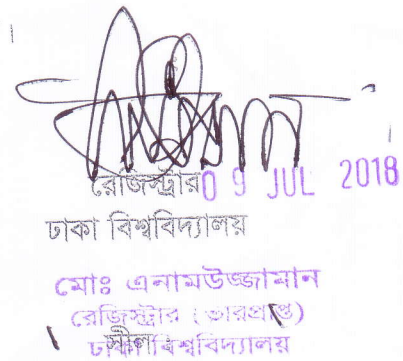 রেজিস্ট্রার 09 JUL 2018
ঢাকা বিশ্ববিদ্যালয়
মোঃ এনামউজ্জামান
রেজিস্ট্রার (ভারপ্রাপ্ত)
সীল
ঢাকা বিশ্ববিদ্যালয়